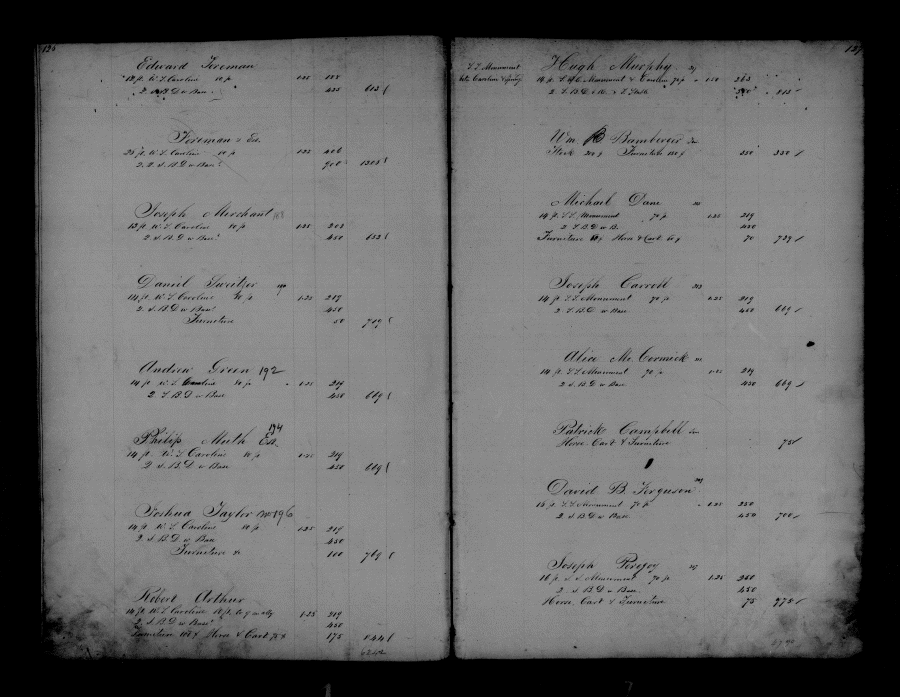 126
Edward Foreman
12 ft. W. S. Caroline 80 ft 1.25 188
2 s. B. D w Base 425 613
Foreman &
25 ft. W. S. Caroline 80 ft 1.25 406
2. 2 s. B. D w Base 900 1306
Joseph Merchant
13 ft W. S. Caroline 80 ft 1.25 203
2 s. B D w Base 450 653
Daniel Sweitzer 190
14 ft. W. S. Caroline 80 ft 1.25 219
2 s. B. D w Base 450
Furniture 50 719
Andrew Green 192
14 ft W. S. Caroline 80 ft 1.25 219
2 S. B. D w Base 450 669
194
Philip Muth Est.
14 ft. W. S. Caroline 80 ft 1.25 219
2 s. B. D w Base 450 669
Joshua Taylor No 196
14 ft W. S. Caroline 80 ft. 1.25 219
2 s. B D w Base 450
Furniture &c 100 769
Robert Arthur
14 ft W. S. Caroline 80 ft. 1.25 219
2 s. B D w Base 450
Furniture 100 $ Horse & Cart 75 $ 175 844
6242
127
S. S. Monument
Hugh Murphy
2 S. B. D.
Wm. B Bamberger
Stock 200 $ Furniture 150 $ 350 350
Michael Dane
14 ft. S. S. Monument 70 ft 1.25 219
2 S. B. D w B. 450
Furniture 10 $ Horse & Cart 60 $ 70 739
Joseph Carroll
14 ft S. S. Monument 70 ft 1.25 219
2 S. B. D w Base 450 669
Alice Mc. Cormick
14 ft. S. S. Monument 70 ft 1.25 219
2 s. B. D w Base 450 669
Patrick Campbell
Horse Cart & Furniture 75
David B. Ferguson
16 ft. S. S. Monument 70 ft 1.25 250
2 s. B. D w Base 450 700
Joseph Perigoy
16 ft. S. S. Monument 70 ft 1.25 250
2 s. B. D w Base. 450
Horse, Cart & Furniture 75 775